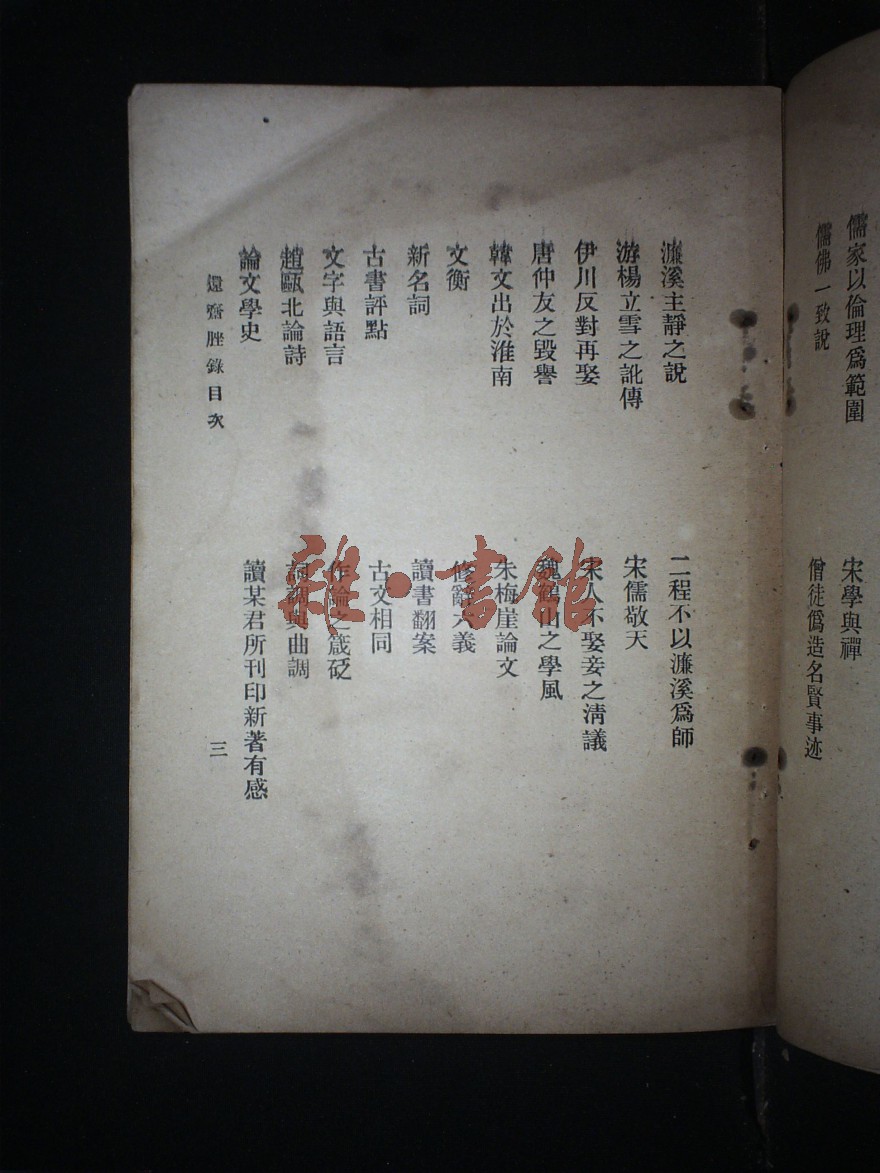 儒家以倫理爲範圍
宋學與禪
儒佛一致說
僧徒僞造名賢事迹
濂溪主靜之說
二程不以濂溪爲師
游楊立雪之訛傳
宋儒敬天
伊川反對再娶
宋人不娶妾之淸議
唐仲友之毀譽
魏鶴山之學風
韓文出於淮南
朱梅崖論文
文衡
修辭六義
新名詞
讀書翻案
古書評點
古文相同
文字與語言
作論之箴砭
趙甌北論詩
詞調與曲調
論文學史
讀某君所刊印新著有感
還齋脞錄目次
三
雜·書館